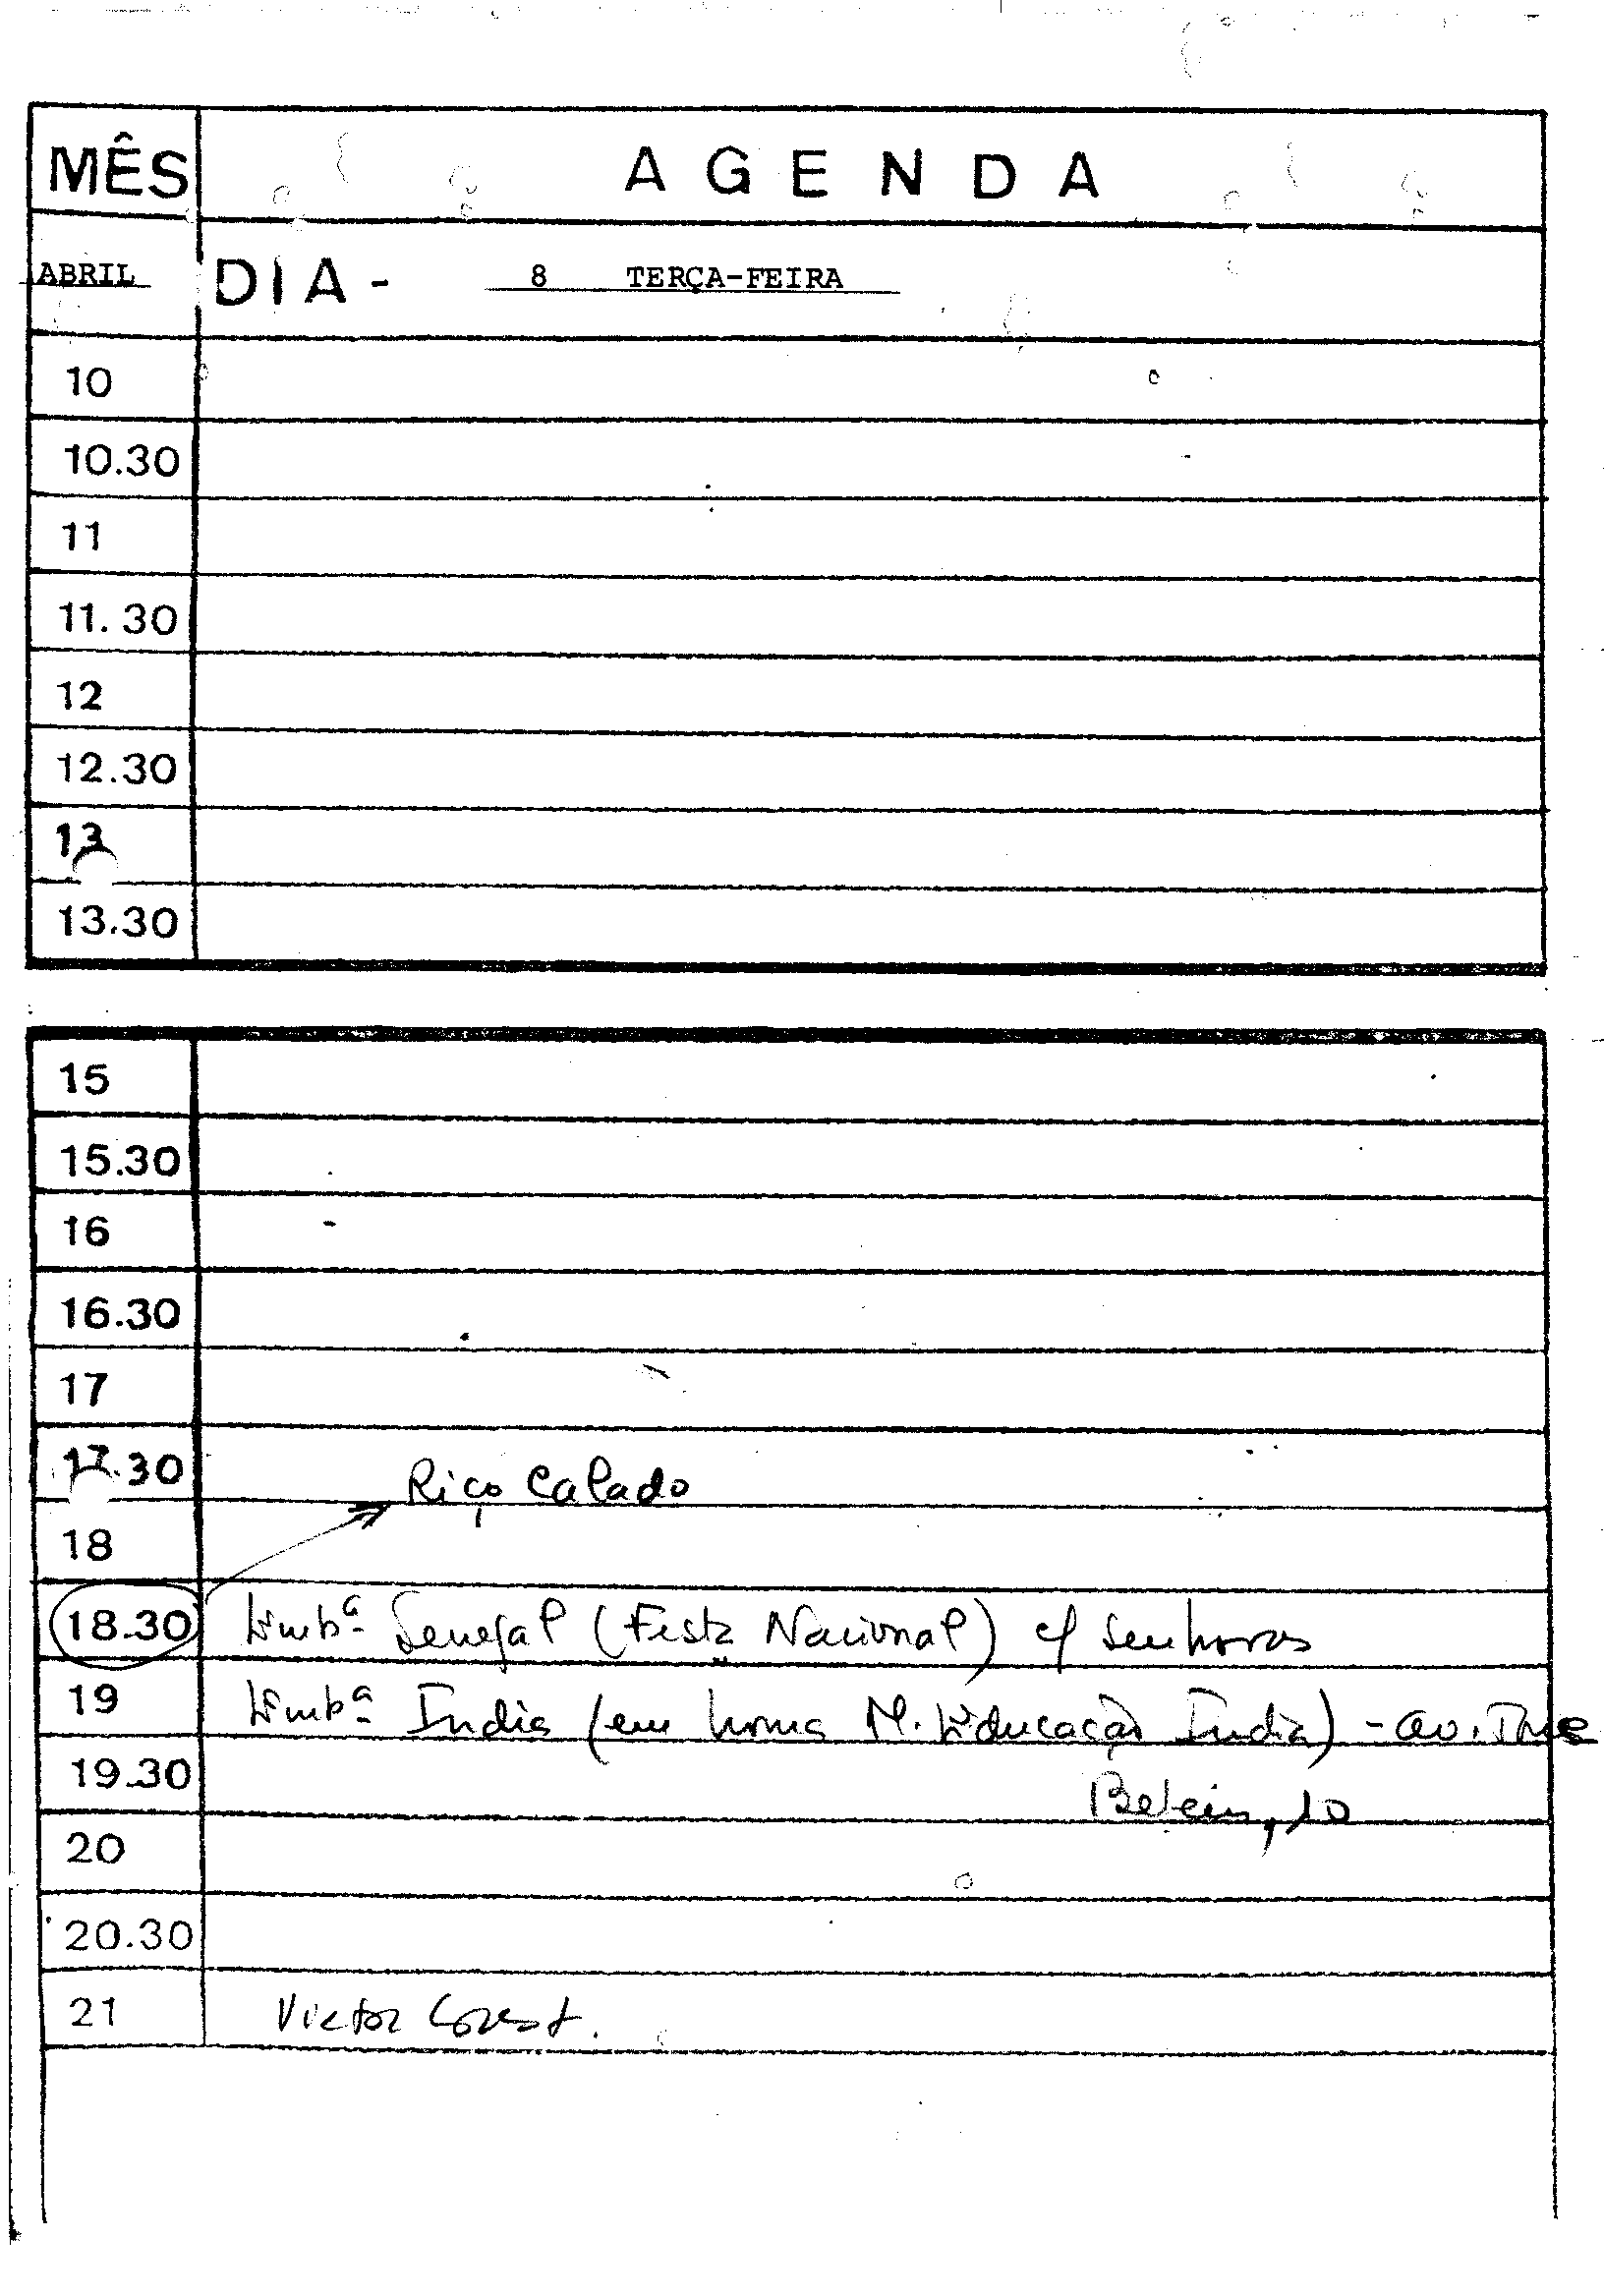 MÊS AGENDA
ABRIL DIA - 8 TERÇA-FEIRA
10
10.30
11
11.30
12
12.30
13
13.30
15
15.30
16
16.30
17
17.30 Riço Calado
18
18.30 Embª Senegal (Festa Nacional) c/ senhoras
19 Embª India (em homa M. Educação India) - av. Torre
19.30 Belem, 10
20
20.30
21 Victor